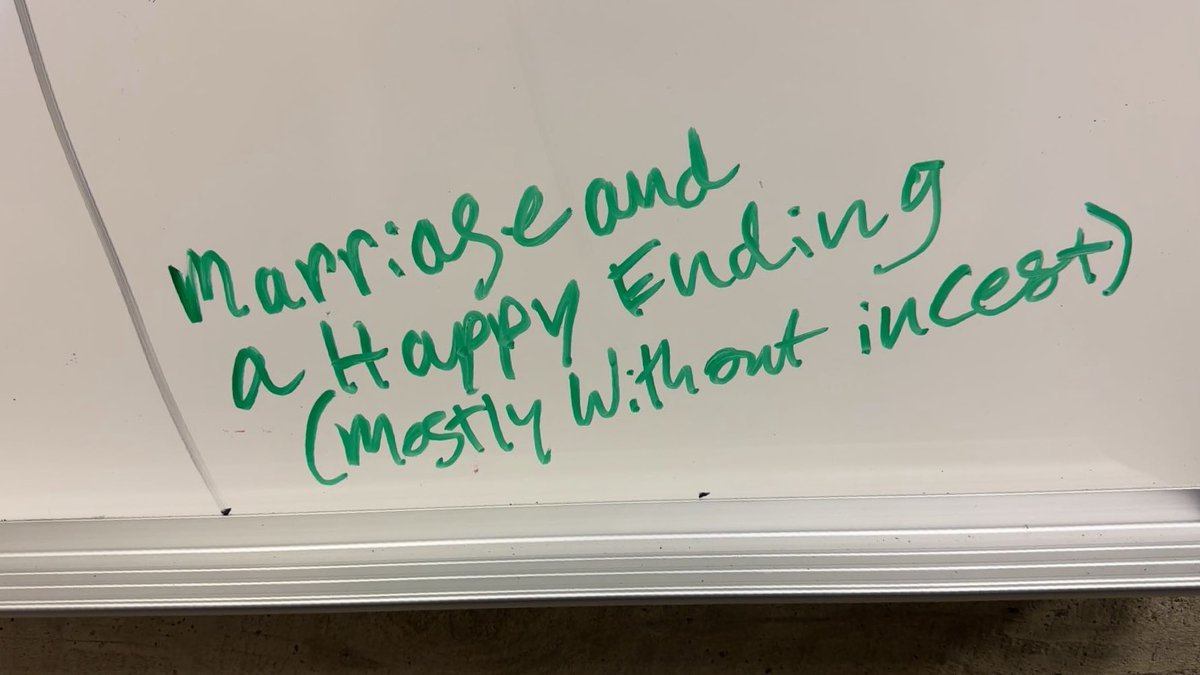 Marriage and
a Happy Ending
(Mostly Without incest)